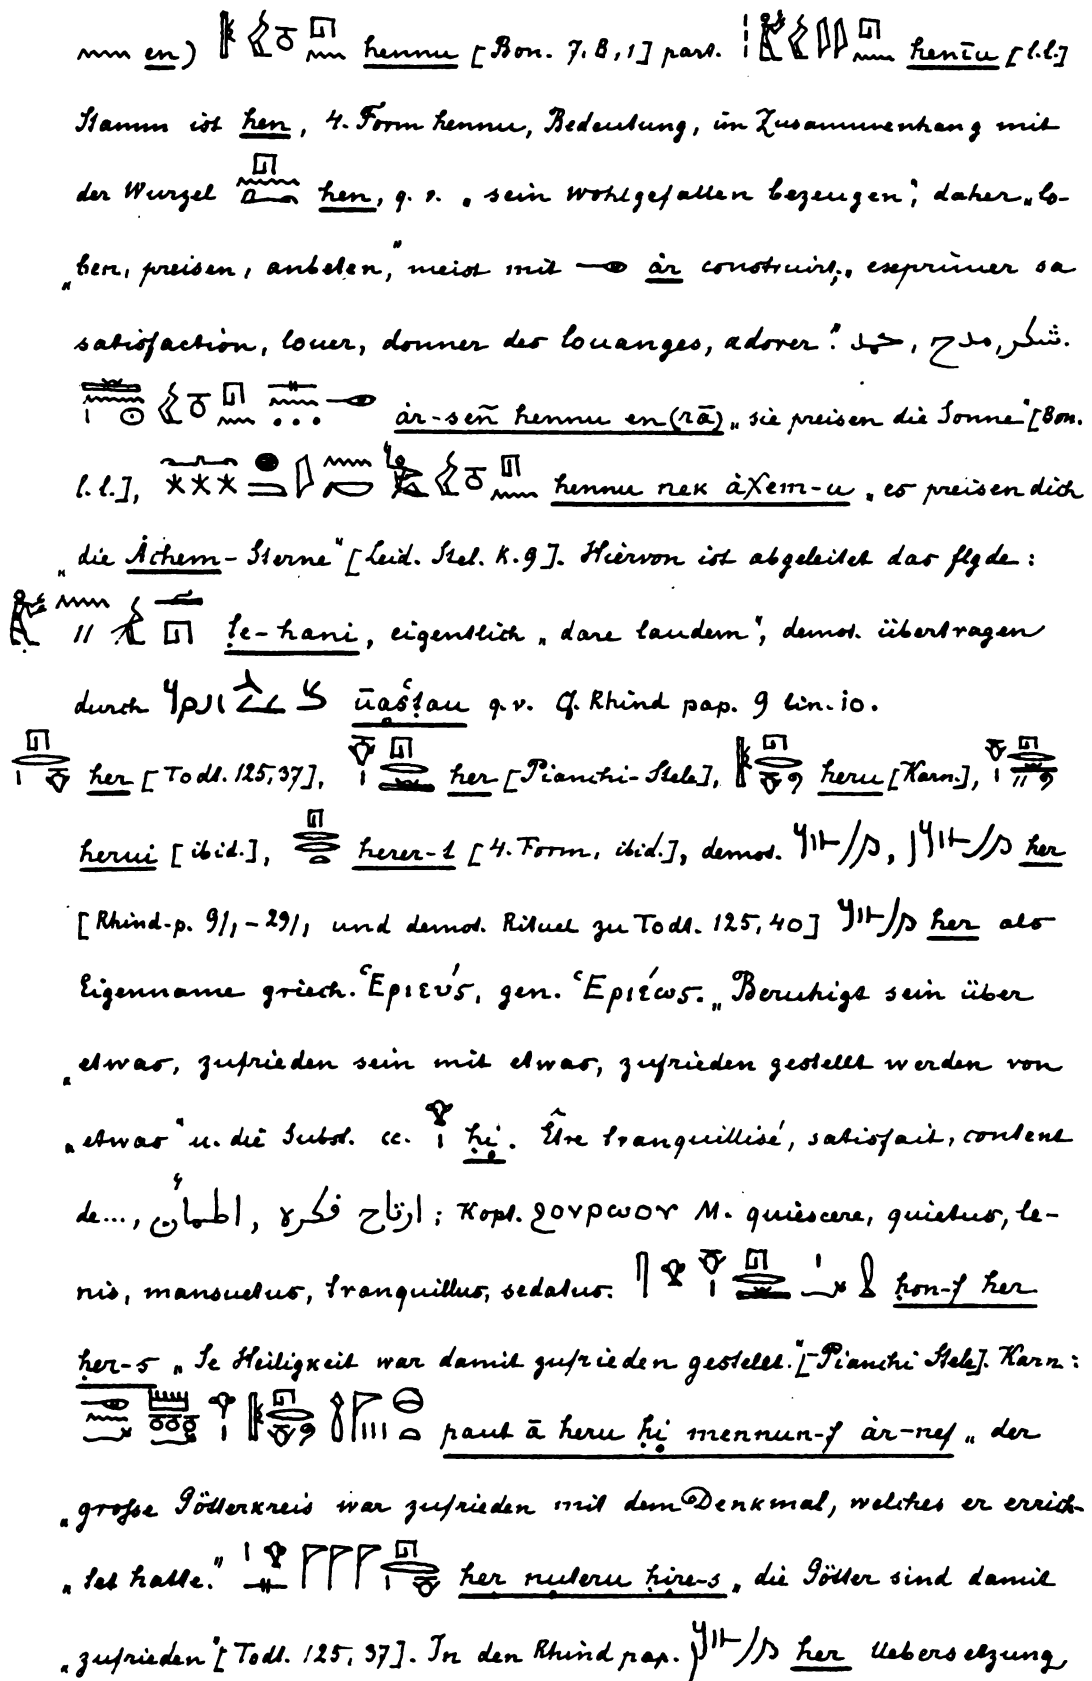 en) hennu [Bon. 7, B, 1] part. henīu [l.l.]
Stamm ist hen, 4. Form hennu, Bedeutung, im Zusammenhang mit
der Wurzel hen, q. v. „sein wohlgefallen bezeugen“, daher „lo-
„ben, preisen, anbeten,“ meist mit ȧr construirt; „exprimer sa
satisfaction, louer, donner des louanges, adorer“. شكر, مدح, حمد
ȧr-señ hennu en (rā) „sie preisen die Sonne“ [Bon.
l.l.], hennu nek ȧχem-u „es preisen dich
„die Ȧchem-Sterne“ [Leid. Stel. K. 9]. Hiervon ist abgeleitet das flgde:
ṭe-hani, eigentlich „dare laudem“, demot. übertragen
durch q. v. Cf. Rhind pap. 9 lin. 10.
her [Todt. 125, 37], her [Pianchi-Stele], heru [Karn.], 
herui [ibid.], herer-t [4. Form, ibid.], demot. her
[Rhind-p. 9/1 – 29/1 und demot. Rituel zu Todt. 125, 40] her als
Eigenname griech. Ἑριεύς, gen. Ἑριέως. „Beruhigt sein über
„etwas, zufrieden sein mit etwas, zufrieden gestellt werden von
„etwas“ u. die Subst. cc. ḥi. Être tranquillisé, satisfait, content
de..., ارتاح فكره, اطمأن; Kopt. ϩⲟⲩⲣⲱⲟⲩ M. quiescere, quietus, le-
nis, mansuetus, tranquillus, sedatus. ḥon-f her
ḥer-s „Se Heiligkeit war damit zufrieden gestellt.“ [Pianchi Stele]. Karn:
paut ā heru ḥi mennun-f ȧr-nef „der
„große Götterkreis war zufrieden mit dem Denkmal, welches er errich-
„tet hatte.“ her nuteru ḥire-s „die Götter sind damit
„zufrieden“ [Todt. 125, 37]. In den Rhind pap. her Uebersetzung